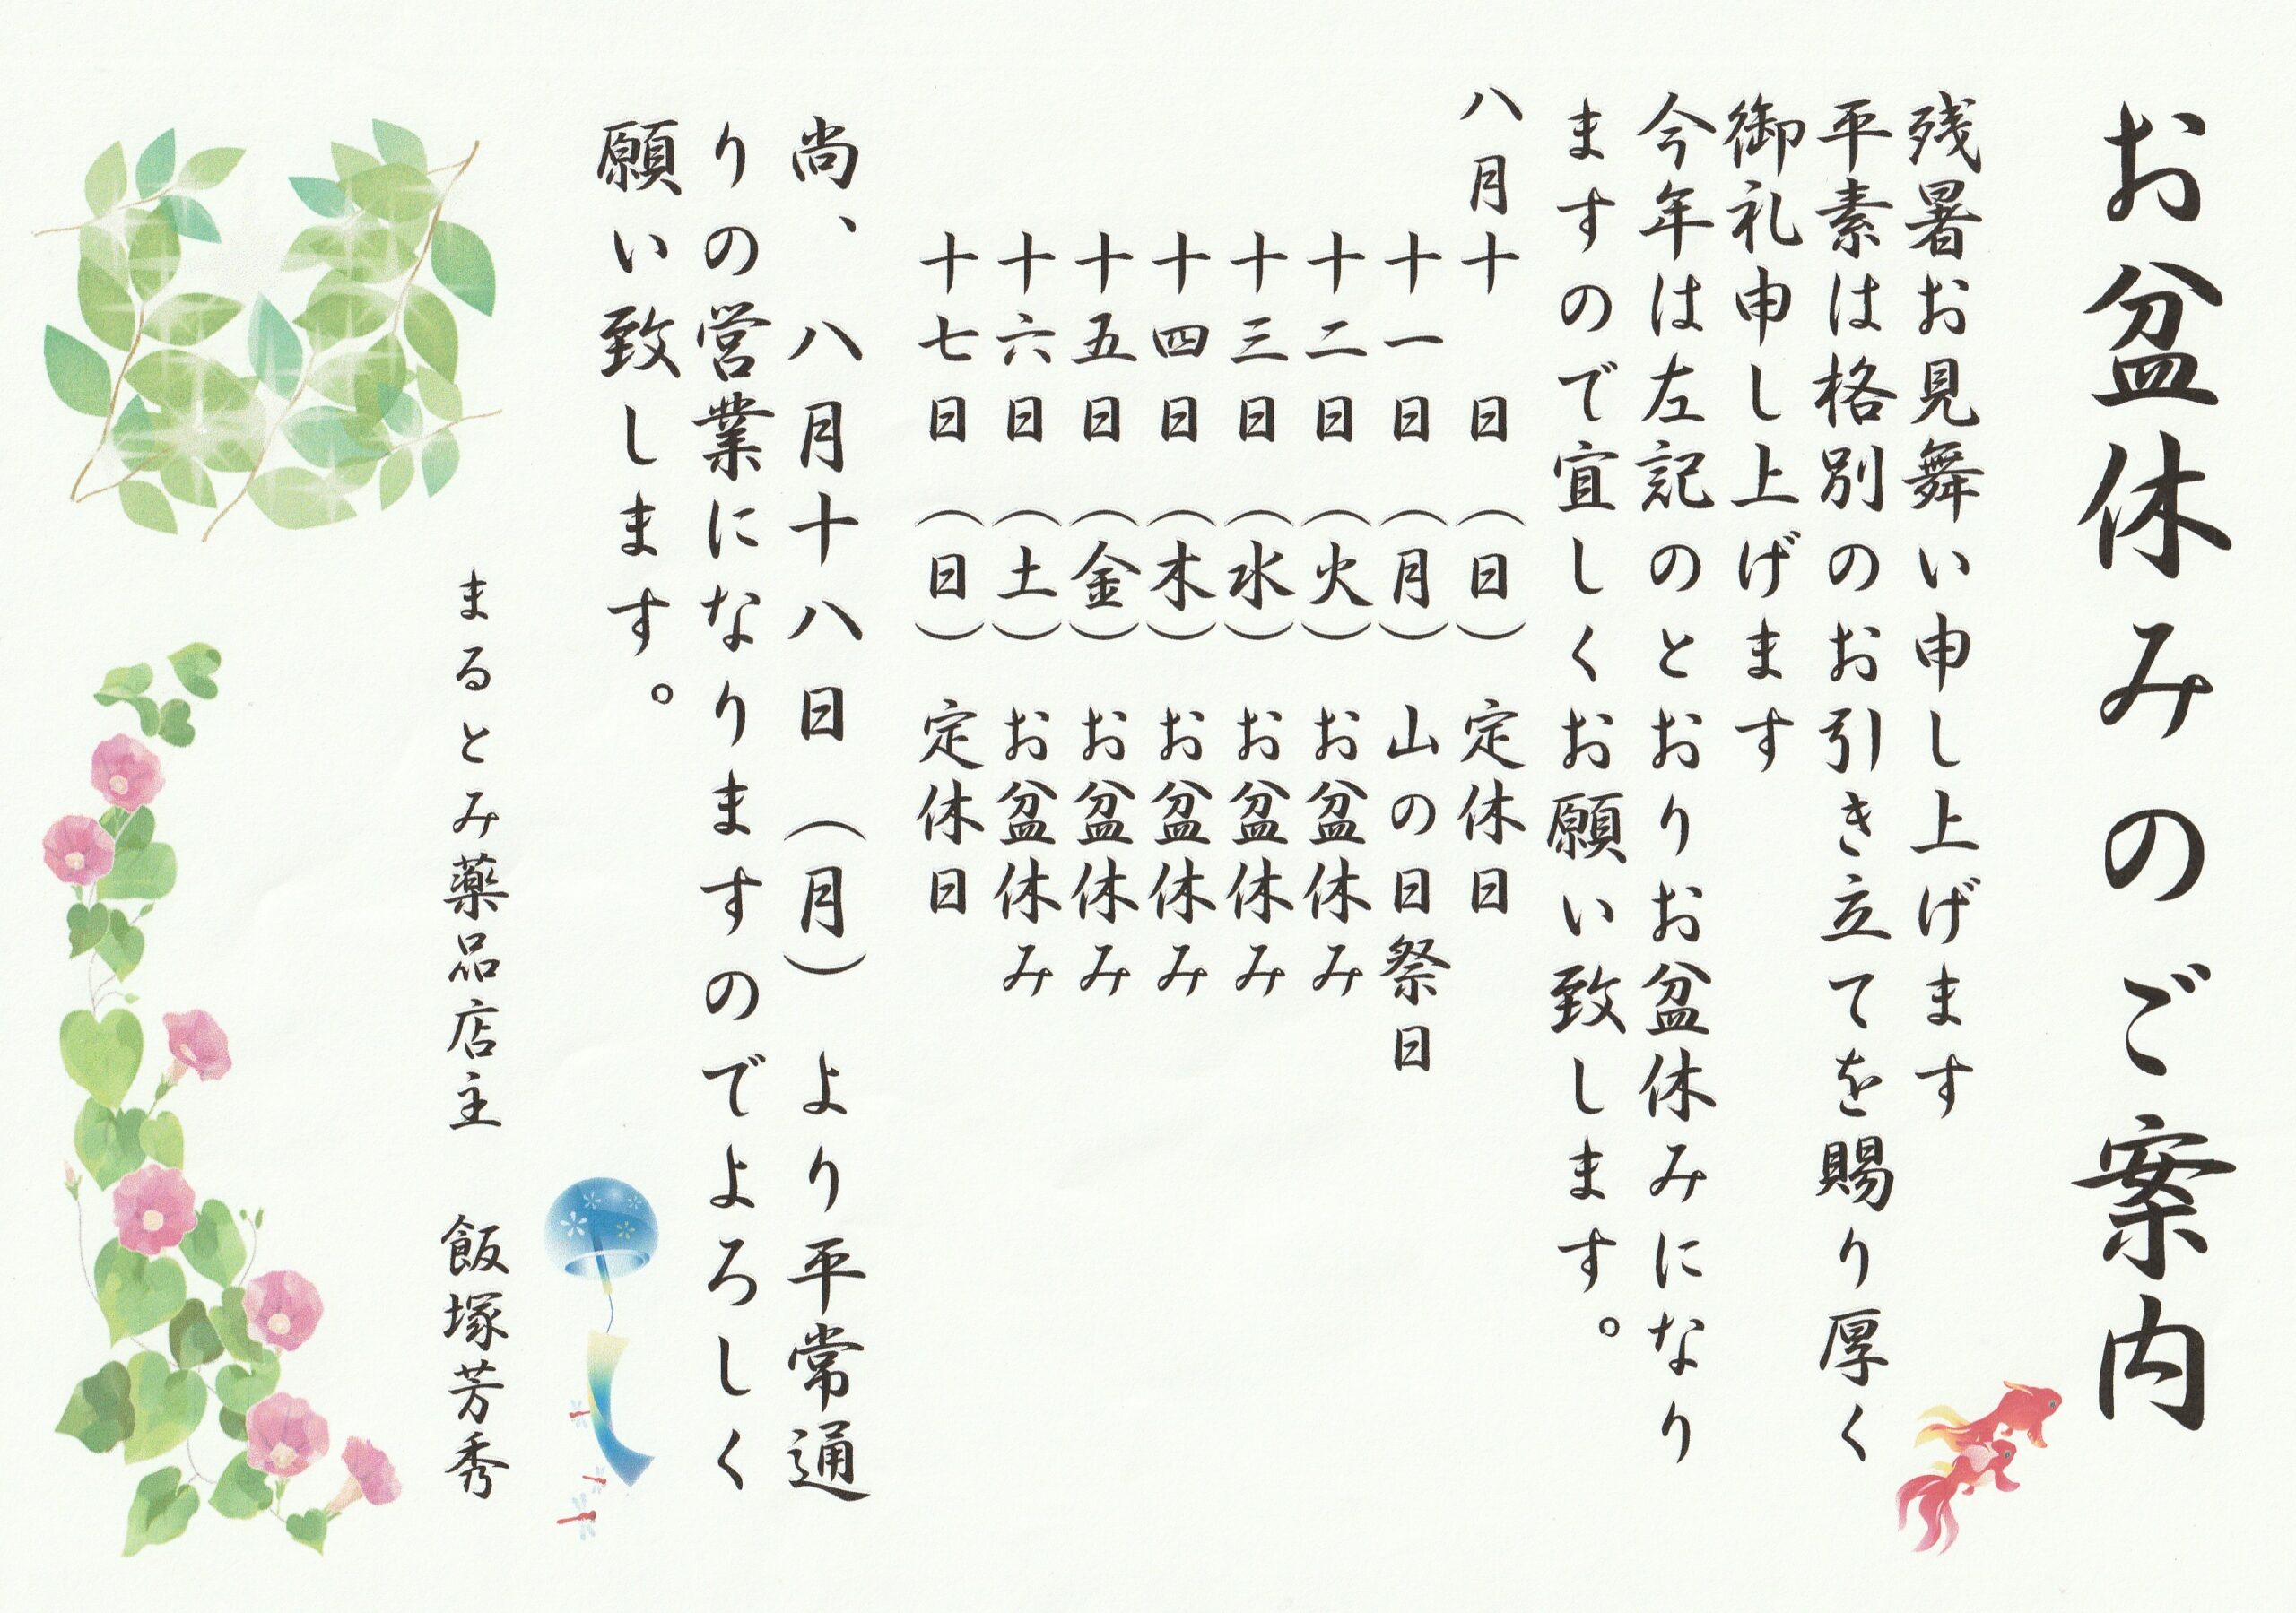 お盆休みのご案内
残暑お見舞い申し上げます
平素は格別のお引き立てを賜り厚く
御礼申し上げます
今年は左記のとおりお盆休みになり
ますので宜しくお願い致します。
八月十日（日）定休日
十一日（月）山の日祭日
十二日（火）お盆休み
十三日（水）お盆休み
十四日（木）お盆休み
十五日（金）お盆休み
十六日（土）お盆休み
十七日（日）定休日
尚、八月十八日（月）より平常通
りの営業になりますのでよろしく
願い致します。
まるとみ薬品店主　飯塚芳秀